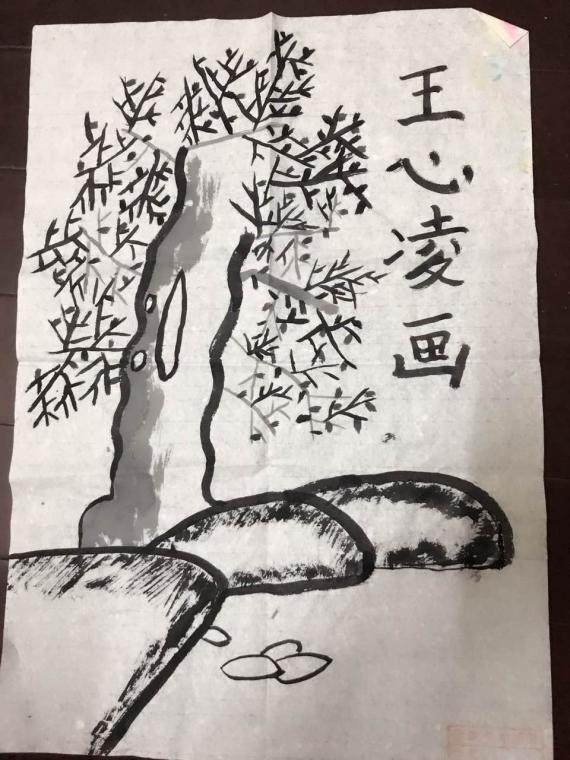 王心凌画